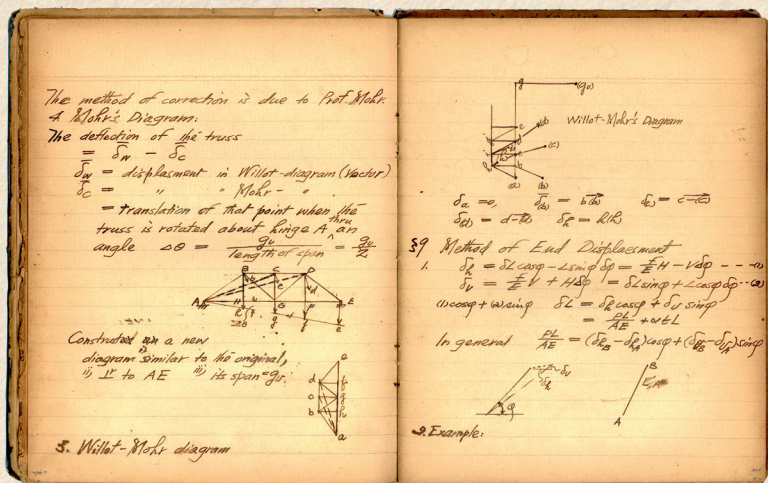 The method of correction is due to Prof. Mohr.
4. Mohr's Diagram:
The deflection of the truss
= δ̄w - δ̄c
δ̄w = displasment in Willot-diagram (Vector)
δ̄c = " " Mohr- "
= translation of that point when the
truss is rotated about hinge A thru an
angle Δθ = gv / length of span = gv / 2
A B C D E H G F
Constructed on a new
diagram similar to the original,
ii, ⊥r to AE iii, its span = gv
e
d
c
b
a
5. Willot-Mohr diagram
g (gv)
Willot-Mohr's Diagram
e
(d)
(c)
(a) (b)
δa = 0, δ(b) = b(b) δ(c) = c-(c)
δ(d) = d-(d) δh = h(h)
§9 Method of End Displaesment
1. δh = δL cosφ - L sinφ δφ = F/E H - Vδφ ---(1)
δv = F/E V + Hδφ = δL sinφ + L cosφ δφ --(2)
(1) cosφ + (2) sinφ δL = δh cosφ + δv sinφ
= PL/AE + αtL
In general PL/AE = (δhB - δhA) cosφ + (δvB - δvA) sinφ
δv
δh
φ
B
A
2. Example: